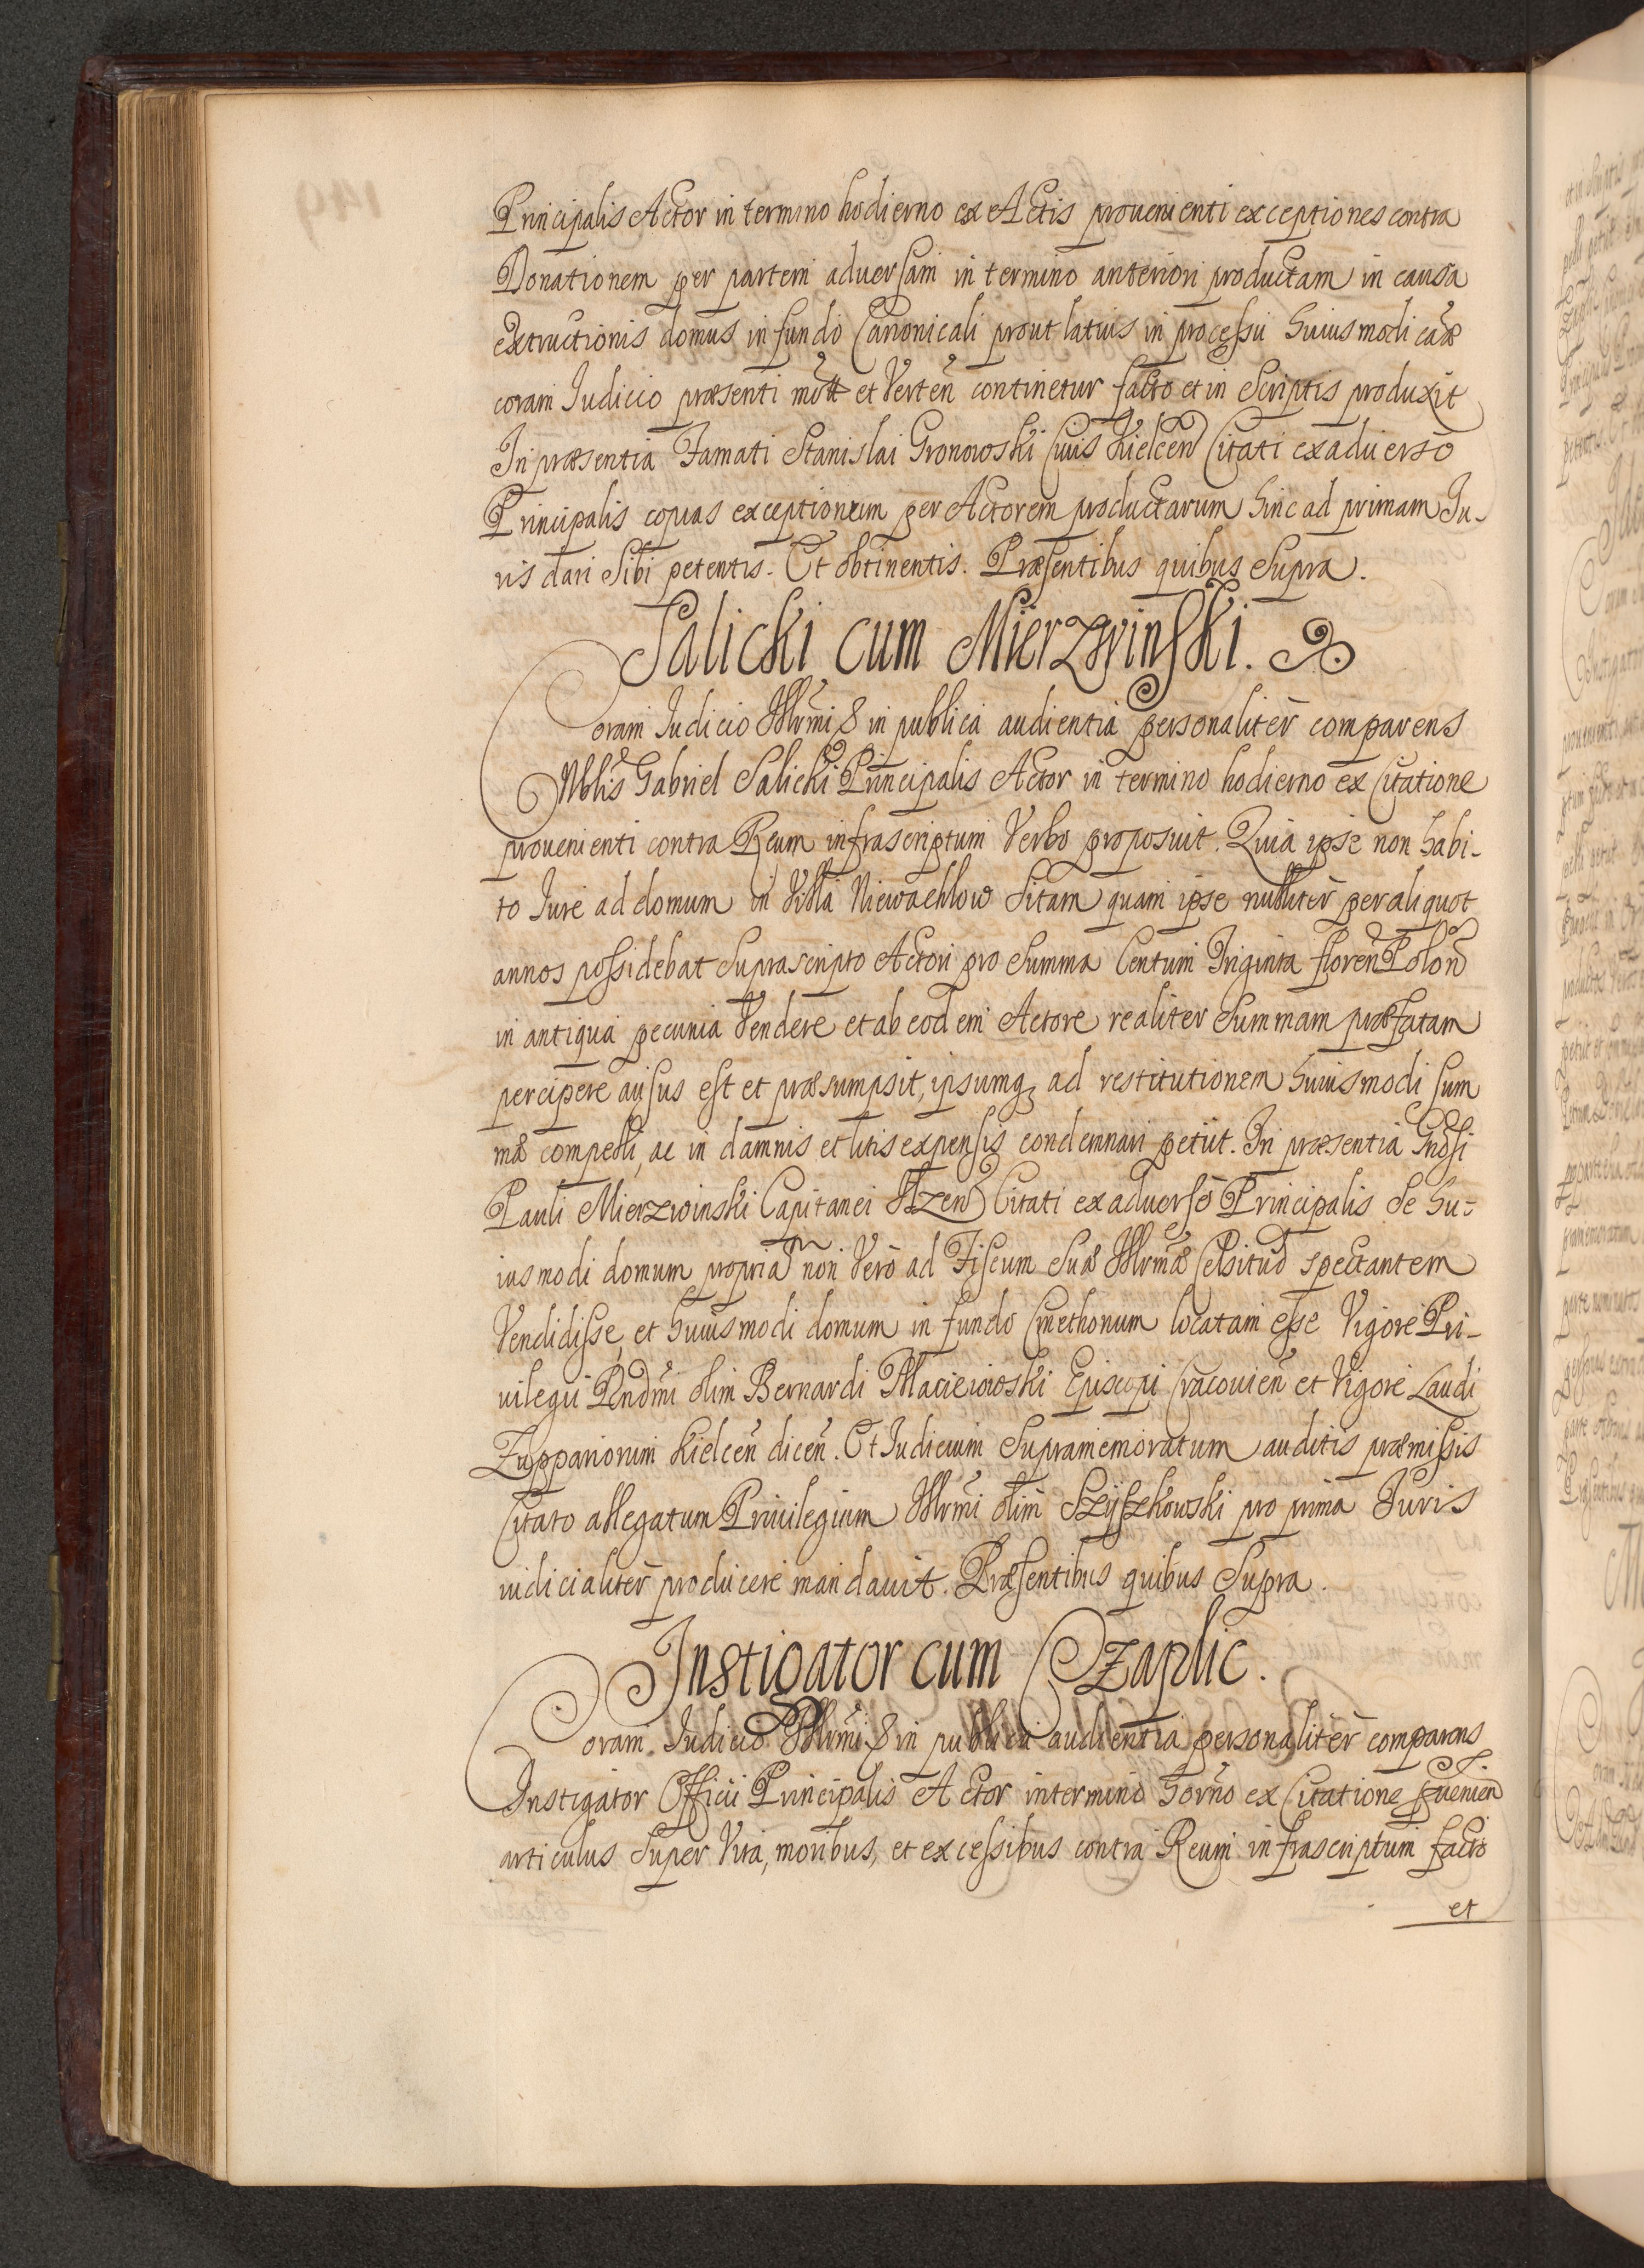 Principalis Actor in termino hodierno ex Actis prouenienti exceptiones contra
Donationem per partem aduersam in termino anteriori productam in causa
extructionis domus in fundo Canonicali prout latius in processu huiusmodi cãæ
coram Iudicio præsenti mott et Verteñ continetur facto et in Scriptis produxit
In præsentia Famati Stanislai Gronowski Ciuis Kielceñ Citati ex aduerso
Principalis copias exceptionum per Actorem productarum hinc ad primam Iu-
ris dari Sibi petentis. Et obtinentis. Præsentibus quibus Supra.
Salicki cum Mierzwinski.
Coram Iudicio Illrmi & in publica audientia personaliter comparens
Nblis Gabriel Salicki Principalis Actor in termino hodierno ex Citatione
prouenienti contra Reum infrascriptum Verbo proposuit. Quia ipse non habi-
to Iure ad domum in Villa Niewachlow Sitam quam ipse nulliter per aliquot
annos possidebat Suprascripto Actori pro Summa Centum Triginta floreñ Poloñ
in antiqua pecunia Vendere et ab eodem Actore realiter Summam præfatam
percipere ausus est et præsumpsit, ipsumq; ad restitutionem huiusmodi sum
mæ compelli, ac in damnis et litis expensis condemnari petiit. In præsentia Gnosi
Pauli Mierzwinski Capitanei Ilzeñ Citati ex aduerso Principalis se hu-
iusmodi domum propriam non Vero ad Fiscum Suæ Illrmæ Celsitud spectantem
Vendidisse, et huiusmodi domum in fundo Cmethonum locatam esse Vigore Pri-
uilegii Rndmi olim Bernardi Maciejowski Episcopi Cracouieñ et Vigore Laudi
Zuppariorum Kielceñ diceñ. Et Iudicium Supramemoratum auditis præmissis
Citato allegatum Priuilegium Illrmi olim Szyszkowski pro prima Iuris
iudicialiter producere mandauit. Præsentibus quibus Supra.
Instigator cum Czaplic.
Coram Iudicio Illrmi & in publica audientia personaliter comparens
Instigator Officii Principalis Actor in termino horño ex Citatione pueñien
articulus Super Vita, moribus, et excessibus contra Reum infrascriptum facto
et